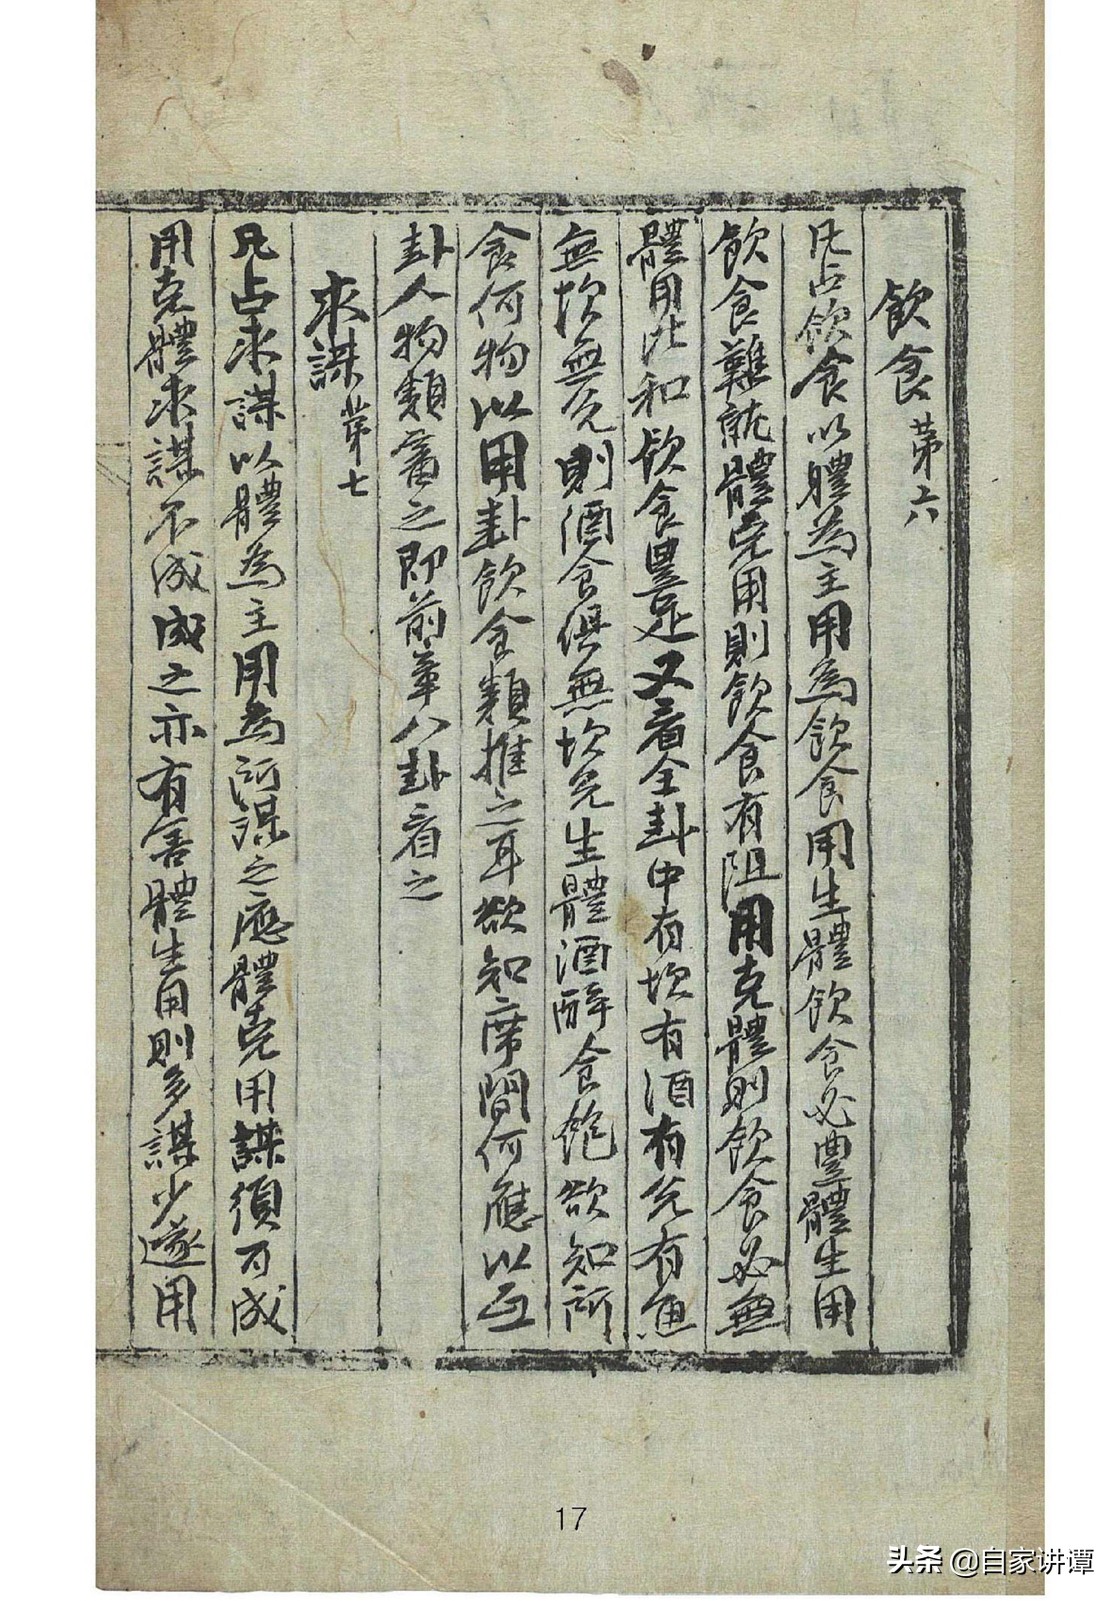 飲食 第六
凡占飲食以體為主用為飲食用生體飲食必豊體生用
飲食難就體克用則飲食有阻用克體則飲食必無
體用比和飲食豊足又看全卦中有坎有酒有兌有食
無坎無兌則酒食俱無坎兌生體酒醉食飽欲知所
食何物以用卦飲食類推之耳欲知席間何應以互
卦人物類審之即前章八卦看之
求謀 第七
凡占求謀以體為主用為所謀之應體克用謀須可成
用克體求謀不成成之亦有害體生用則多謀少遂用
17
头条 @自家讲谭